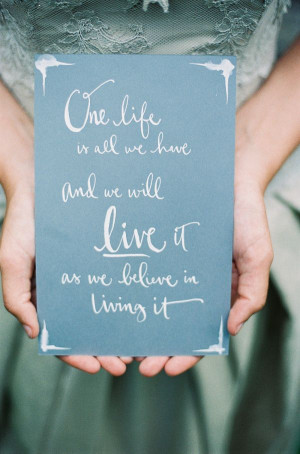 One life
is all we have
and we will
live it
as we believe in
living it